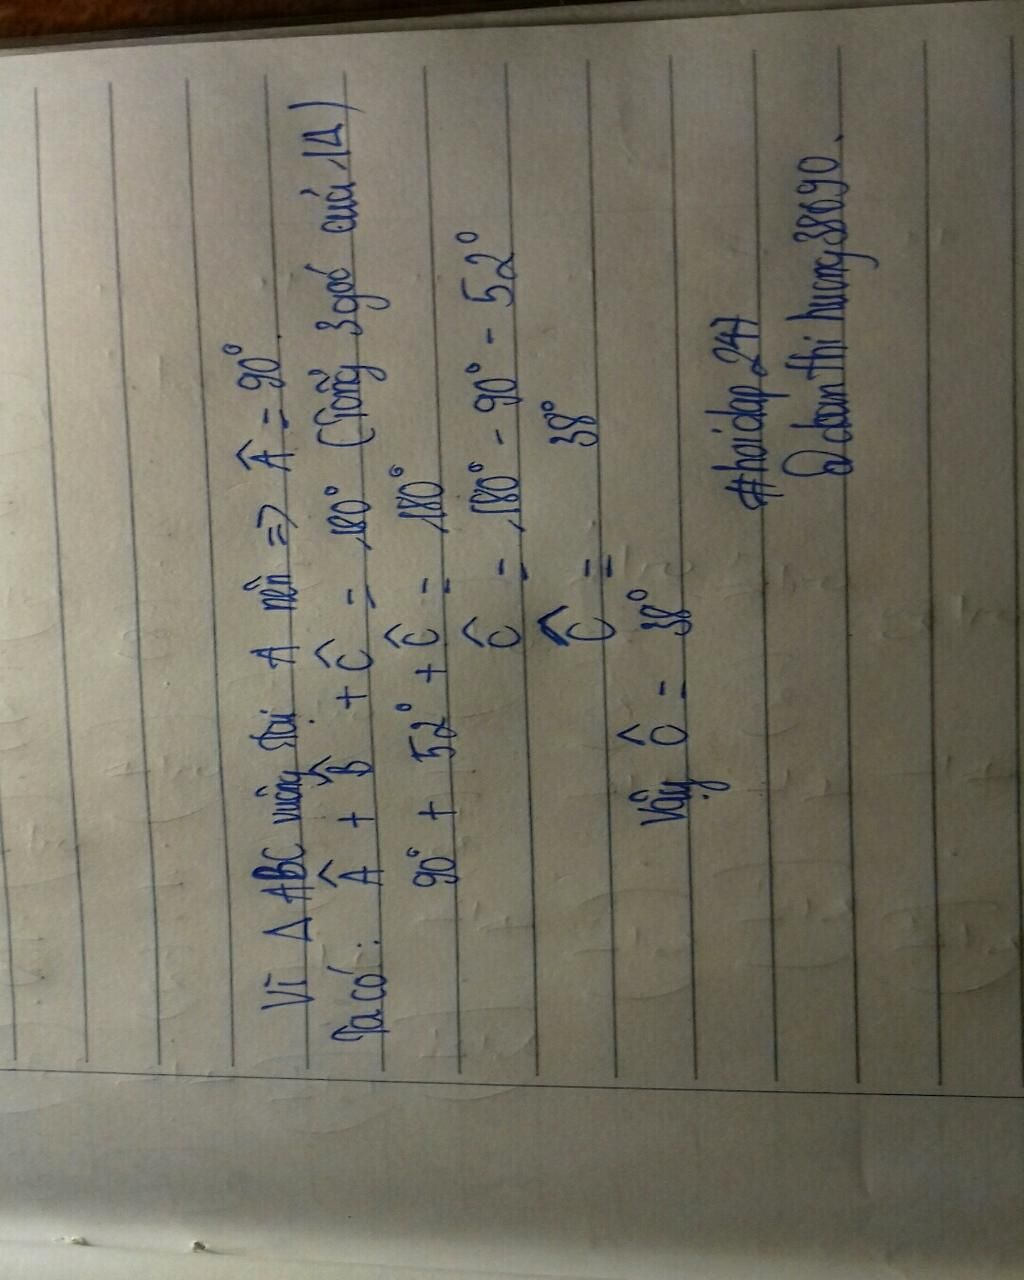 Vì Δ ABC vuông tại A nên => Â = 90°.
Ta có: Â + B̂ + Ĉ = 180° (Tổng 3 góc của 1Δ)
90° + 52° + Ĉ = 180°
Ĉ = 180° - 90° - 52°
Ĉ = 38°
Vậy Ĉ = 38°
#hoidap247
doanthihuong38090.